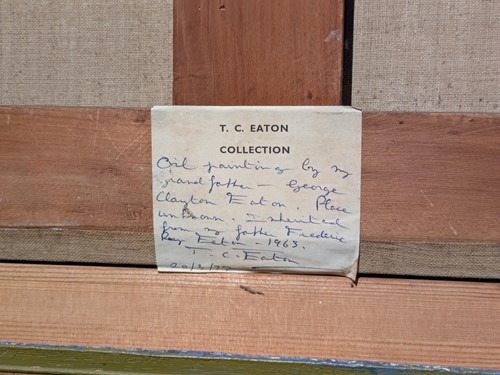 T. C. EATON
COLLECTION
Oil painting by my
grandfather – George
Clayton Eaton. Place
unknown. Inherited
from my father Frederic
Ray Eaton - 1963.
T. C. Eaton